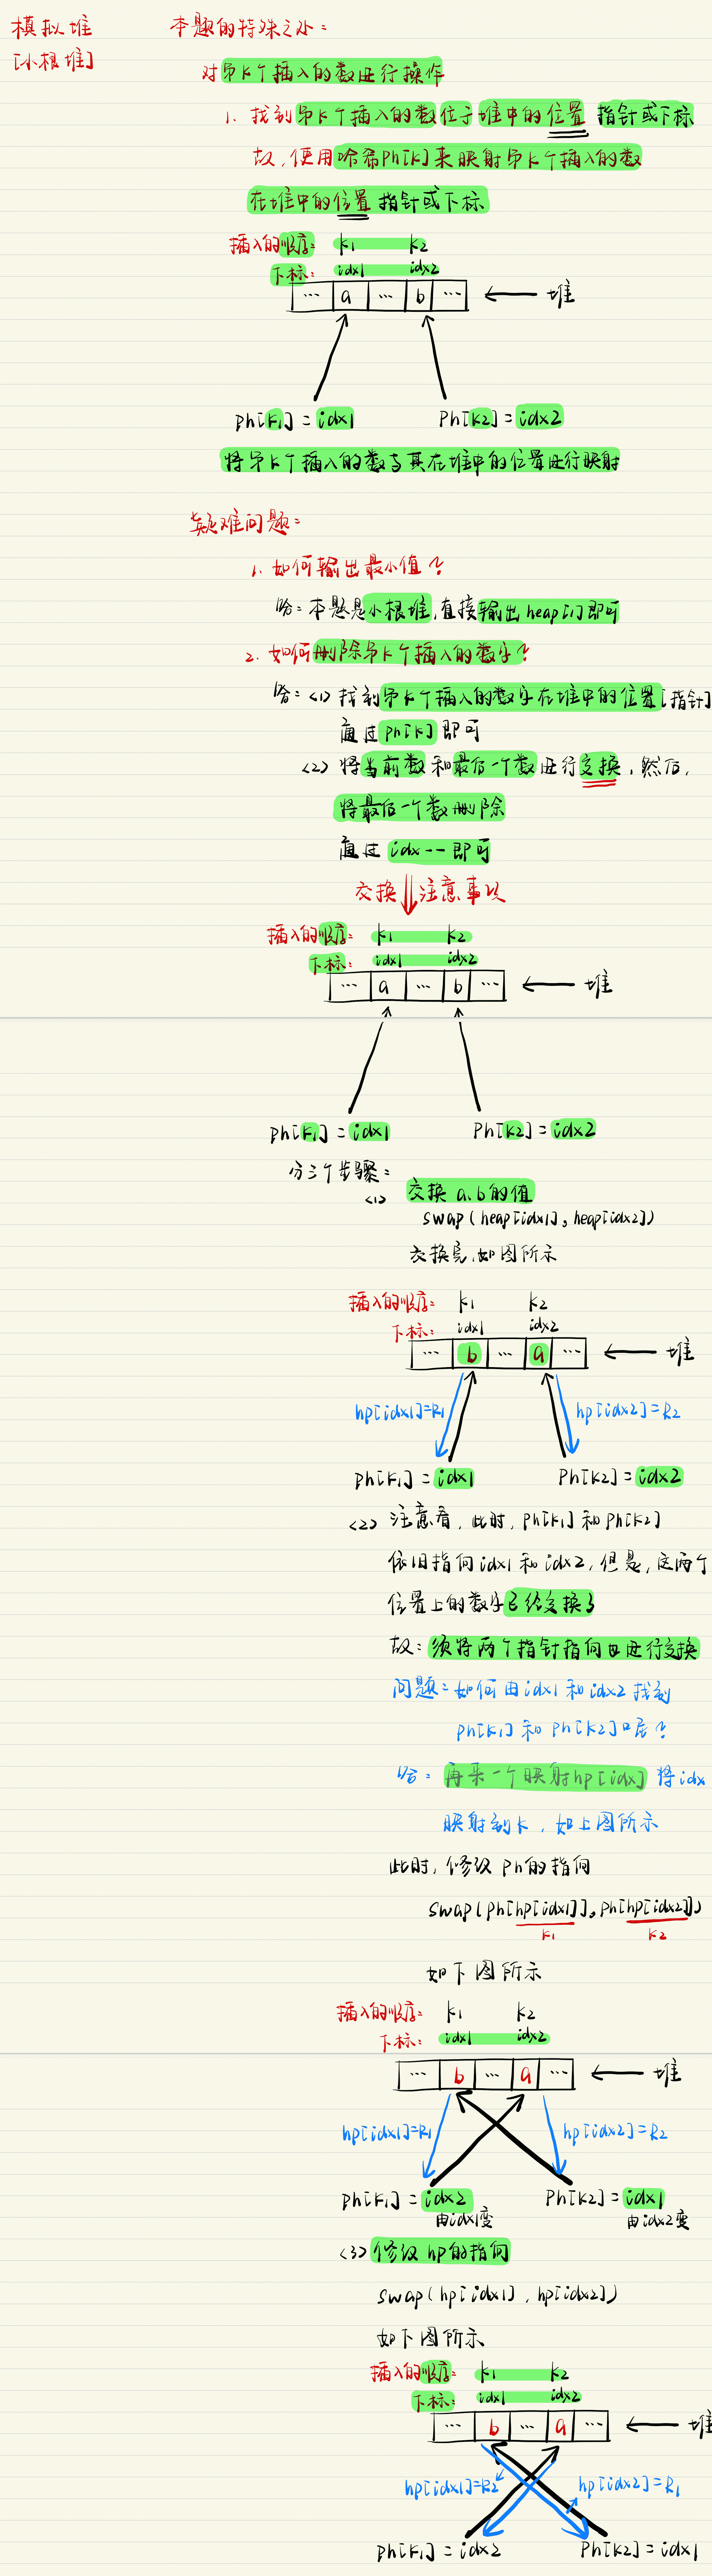 模拟堆
[小根堆]
本题的特殊之处：
对第k个插入的数进行操作
1. 找到第k个插入的数位于堆中的位置 指针或下标
故，使用哈希ph[k]来映射第k个插入的数
在堆中的位置 指针或下标
插入的顺序： k1 k2
下标： idx1 idx2
... a ... b ... ← 堆
ph[k1] = idx1 ph[k2] = idx2
将第k个插入的数与其在堆中的位置进行映射
疑难问题：
1. 如何输出最小值？
答：本题是小根堆，直接输出heap[1]即可
2. 如何删除第k个插入的数字？
答：<1> 找到第k个插入的数字在堆中的位置[指针]
通过ph[k]即可
<2> 将当前数和最后一个数进行交换，然后，
将最后一个数删除
通过 idx-- 即可
交换 ⇓ 注意事项
插入的顺序： k1 k2
下标： idx1 idx2
... a ... b ... ← 堆
ph[k1] = idx1 ph[k2] = idx2
分三个步骤：
<1> 交换a,b的值
swap(heap[idx1], heap[idx2])
交换完，如图所示
插入的顺序： k1 k2
下标： idx1 idx2
... b ... a ... ← 堆
hp[idx1]=k1 hp[idx2]=k2
ph[k1] = idx1 ph[k2] = idx2
<2> 注意看，此时，ph[k1]和ph[k2]
依旧指向idx1和idx2，但是，这两个
位置上的数字已经交换了
故：须将两个指针指向也进行交换
问题：如何由idx1和idx2找到
ph[k1]和ph[k2]呢？
答：再来一个映射hp[idx] 将idx
映射到k，如上图所示
此时，修改ph的指向
swap(ph[hp[idx1]], ph[hp[idx2]])
k1 k2
如下图所示
插入的顺序： k1 k2
下标： idx1 idx2
... b ... a ... ← 堆
hp[idx1]=k1 hp[idx2]=k2
ph[k1] = idx2 ph[k2] = idx1
由idx1变 由idx2变
<3> 修改hp的指向
swap(hp[idx1], hp[idx2])
如下图所示
插入的顺序： k1 k2
下标： idx1 idx2
... b ... a ... ← 堆
hp[idx1]=k2 hp[idx2]=k1
ph[k1] = idx2 ph[k2] = idx1